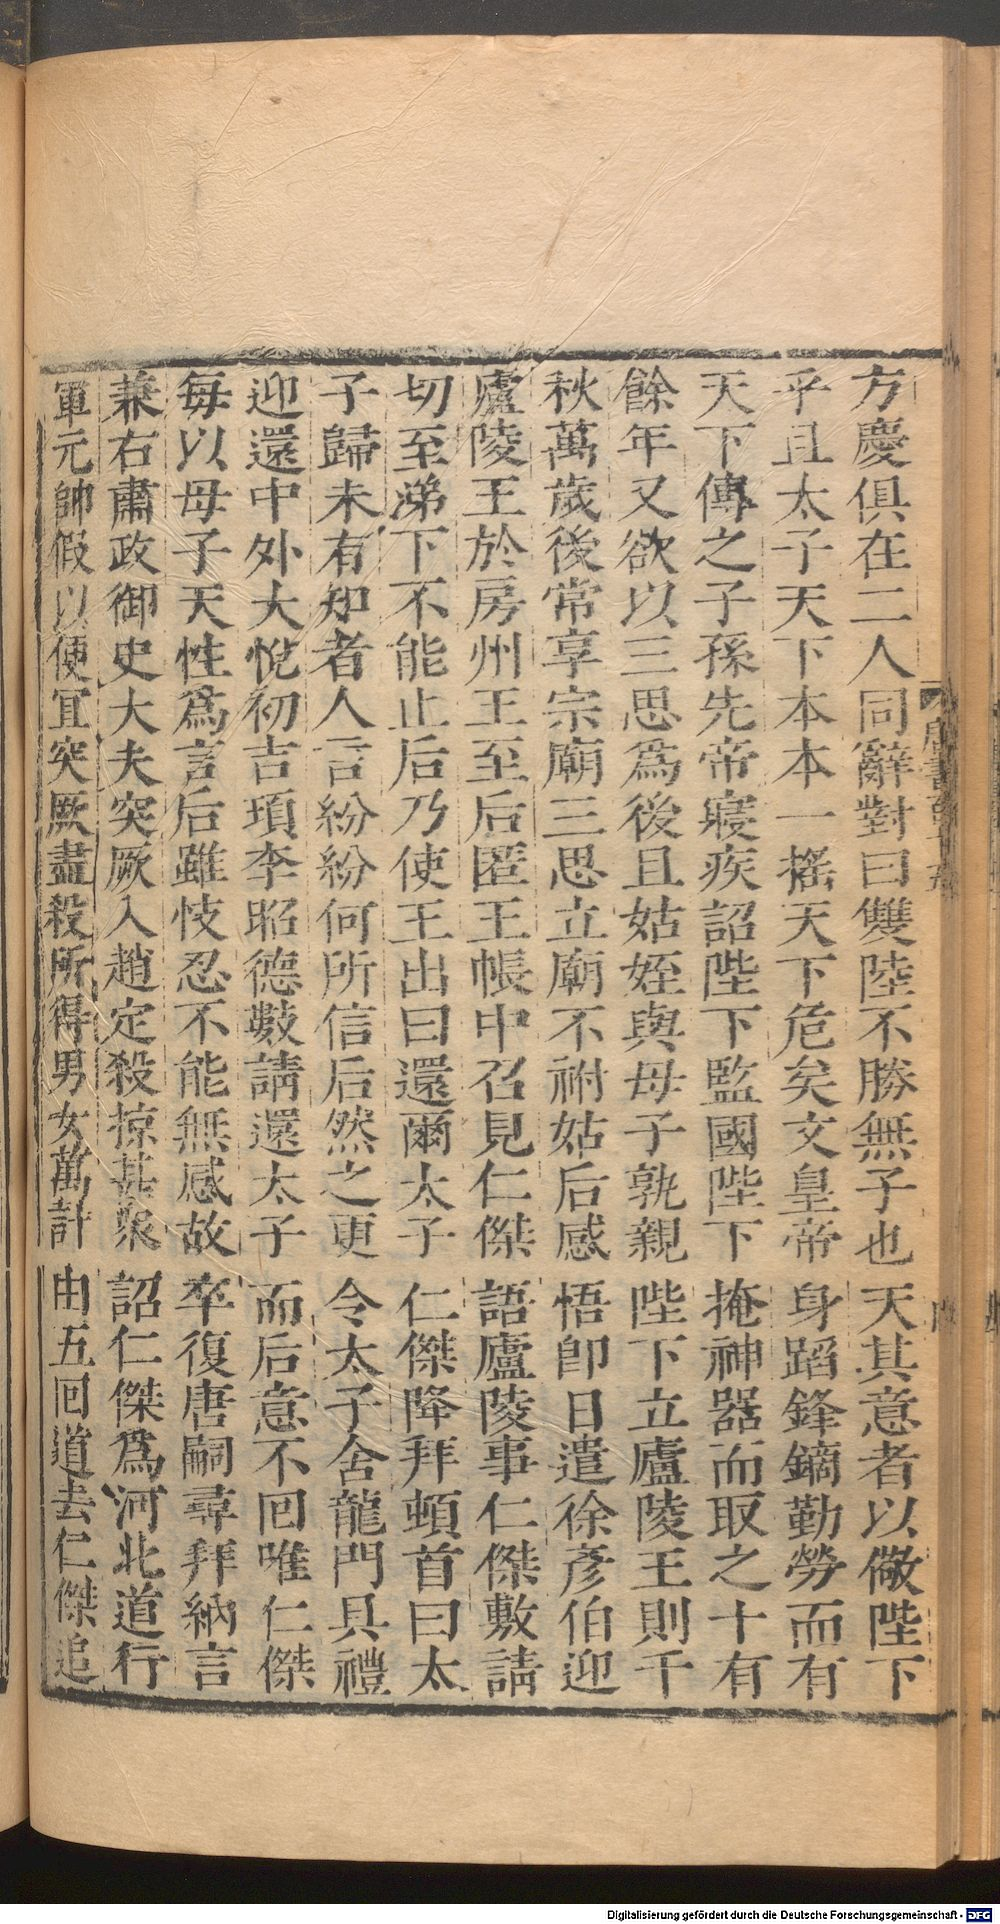 方慶俱在二人同辭對曰雙陸不勝無子也天其意者以儆陛下
乎且太子天下本本一搖天下危矣文皇帝身蹈鋒鏑勤勞而有
天下傳之子孫先帝寢疾詔陛下監國陛下掩神器而取之十有
餘年又欲以三思爲後且姑姪與母子孰親陛下立廬陵王則千
秋萬歲後常享宗廟三思立廟不祔姑后感悟卽日遣徐彥伯迎
廬陵王於房州王至后匿王帳中召見仁傑語廬陵事仁傑敷請
切至涕下不能止后乃使王出曰還爾太子仁傑降拜頓首曰太
子歸未有知者人言紛紛何所信后然之更令太子舍龍門具禮
迎還中外大悅初吉頊李昭德數請還太子而后意不回唯仁傑
每以母子天性爲言后雖忮忍不能無感故卒復唐嗣尋拜納言
兼右肅政御史大夫突厥入趙定殺掠甚衆詔仁傑爲河北道行
軍元帥假以便宜突厥盡殺所得男女萬計由五回道去仁傑追
Digitalisierung gefördert durch die Deutsche Forschungsgemeinschaft - DFG